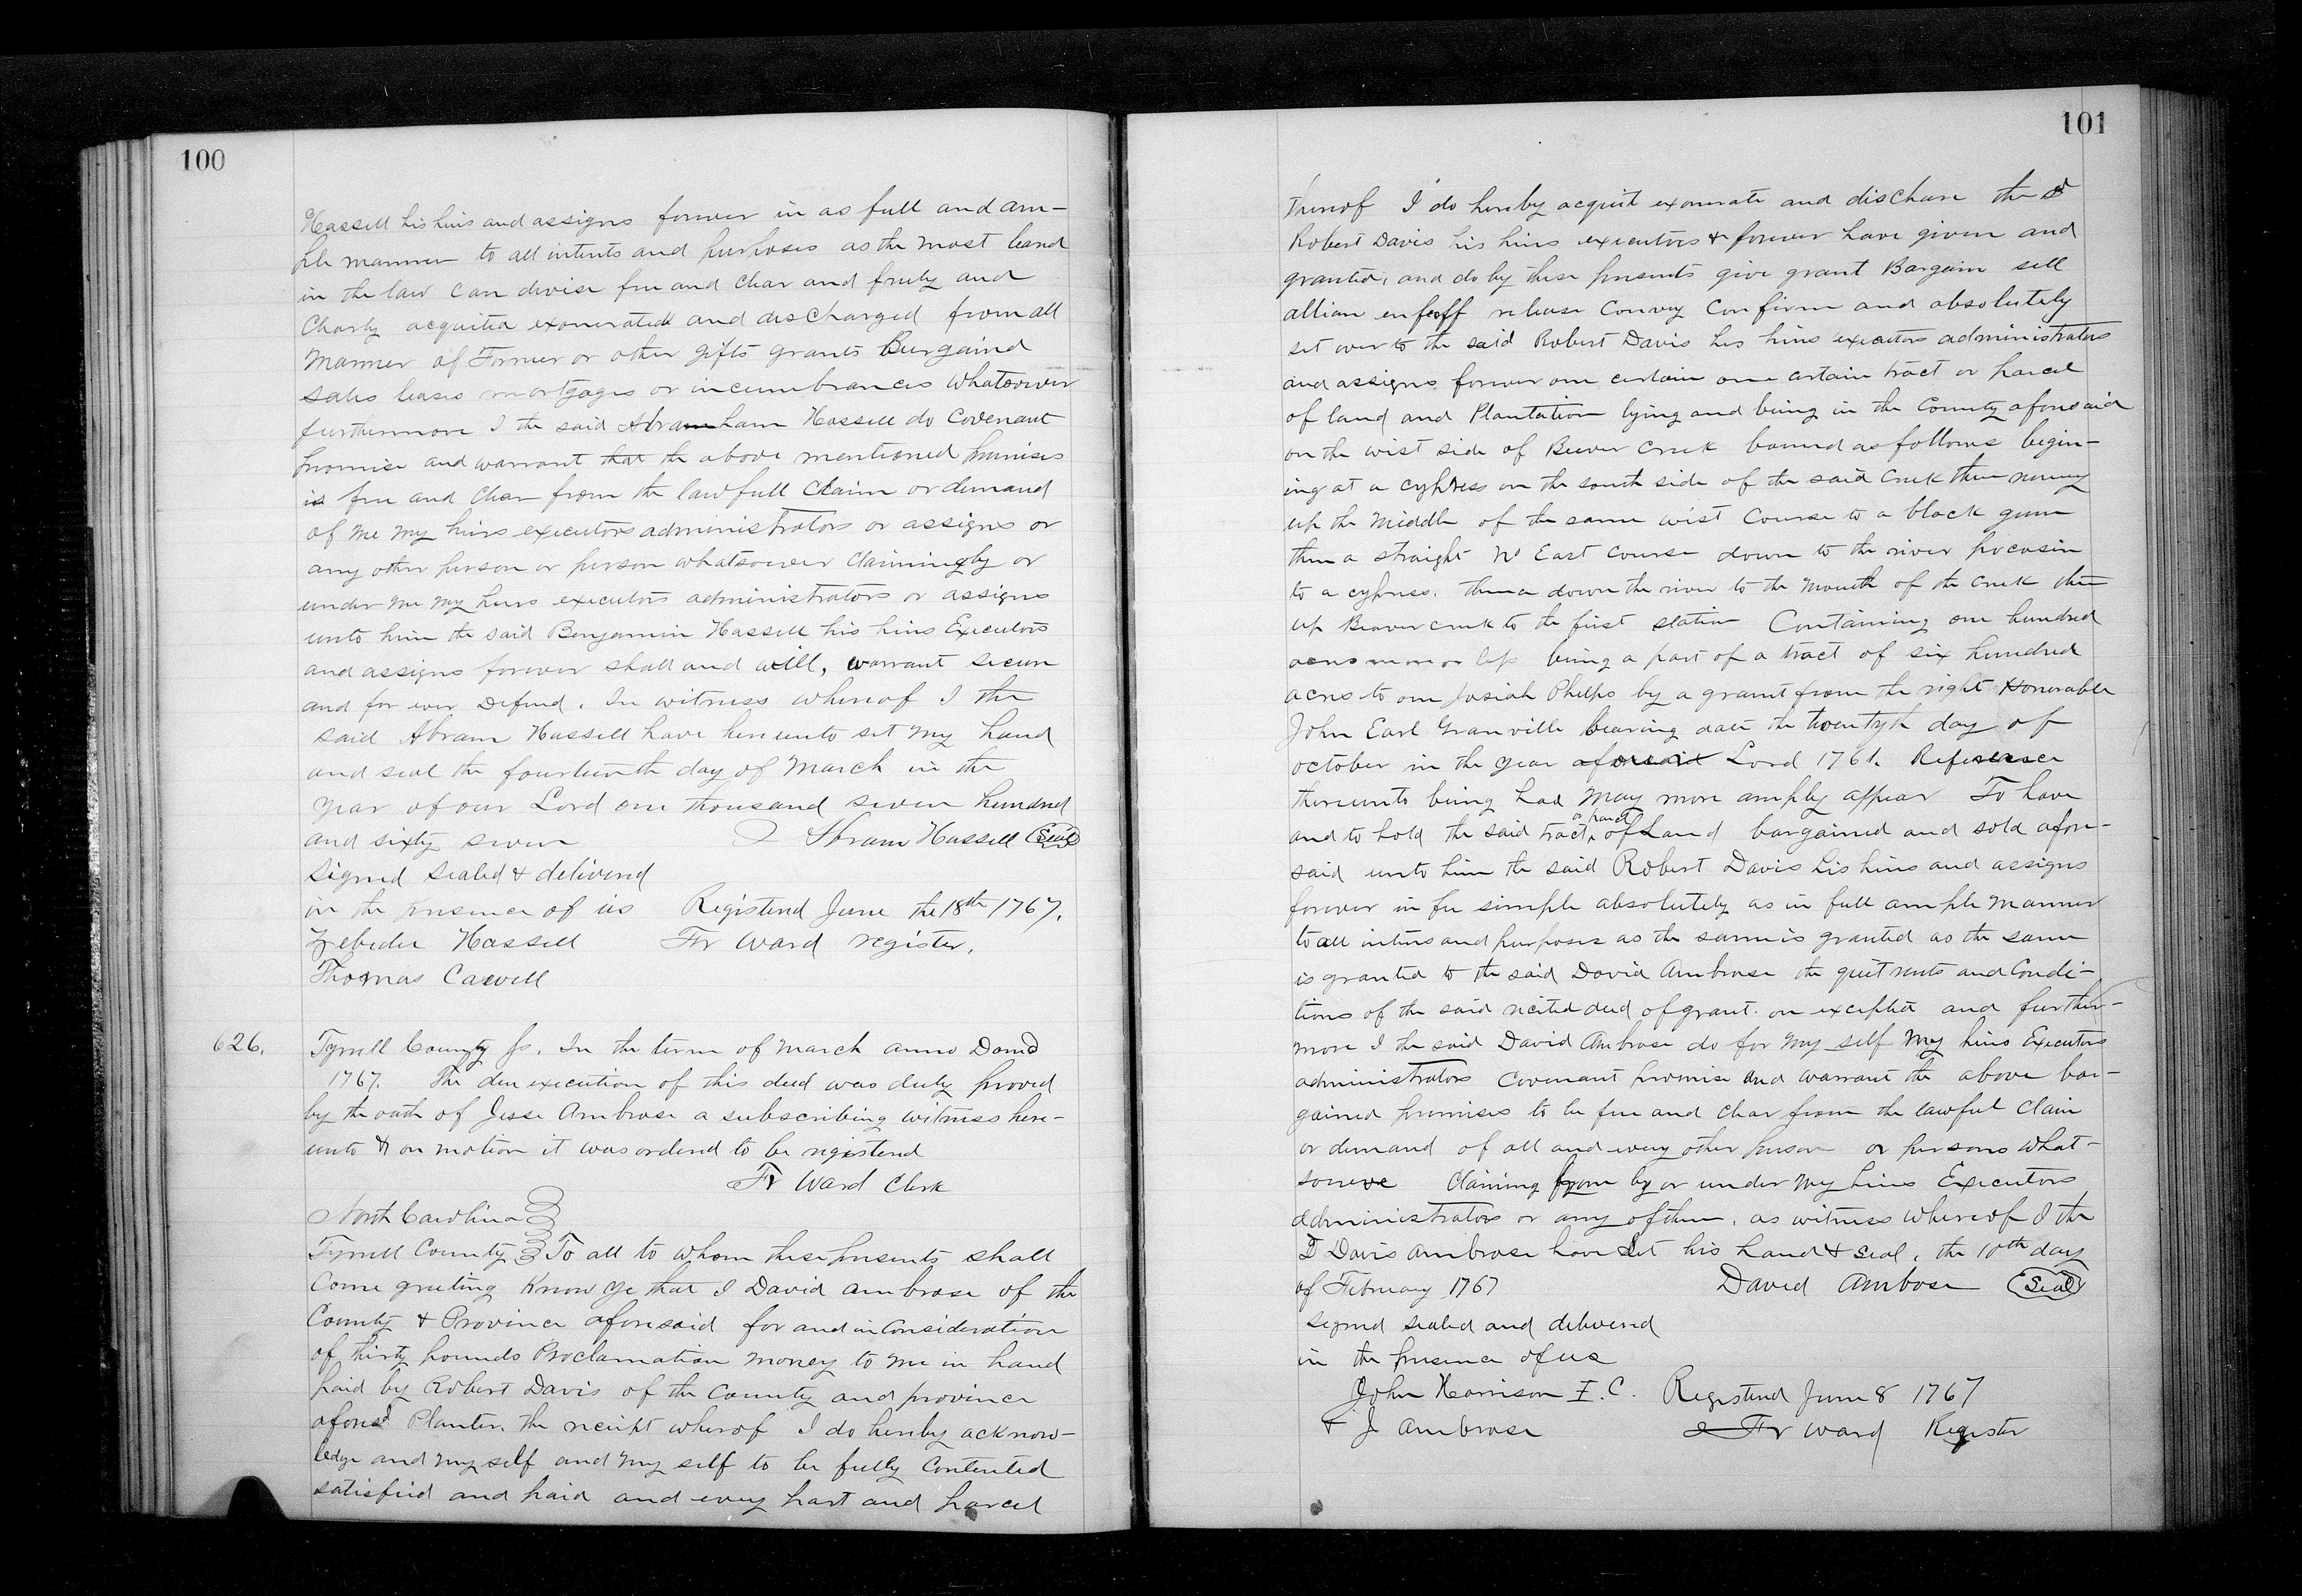 100
Hassell his heirs and assigns forever in as full and am-
ple manner to all intents and purposes as the most leand
in the law can devise free and clear and freely and
Clearly acquited exonerated and discharged from all
manner of Former or other gifts grants Burgaind
sales leases mortgages or incumbrances whatsoever
furthermore I the said Abramham Hassell do Covenant
promise and warrant that the above mentioned premises
is free and clear from the lawfull Claim or demand
of me my heirs executors administrators or assigns or
any other person or person whatsoever Claiming by or
under me my heirs executors administrators or assigns
unto him the said Benjamin Hassell his heirs Executors
and assigns forever shall and will, warrant secure
and for ever Defend. In witness whereof I the
said Abram Hassell have hereunto set my hand
and seal the fourteenth day of March in the
year of our Lord one thousand seven hundred
and sixty seven Abram Hassell (Seal)
Signed sealed & delivered
in the presence of us Registered June the 18th 1767.
Zebedee Hassell Fr Ward register.
Thomas Cawell
626. Tyrrell County Ss. In the term of March anno Domd
1767. The due execution of this deed was duly proved
by the oath of Jesse Ambrose a subscribing witness here-
unto & on motion it was ordered to be registered
Fr Ward Clerk
North Carolina
Tyrrell County To all to whom these presents shall
Come greeting Know ye that I David Ambrose of the
County & Province aforesaid for and in Consideration
of thirty pounds Proclamation money to me in hand
paid by Robert Davis of the County and province
afores.d Planter. the receipt wherof I do hereby acknow-
ledge and my self and my self to be fully Contented
satisfied and paid and every part and parcel
101
thereof I do hereby acquit exonerate and dischare the sd
Robert Davis his heirs executors & forever have given and
granted, and do by these presents give grant Bargain sell
allian enfeoff release Convey Confirm and absolutely
set over to the said Robert Davis his heirs executors administrators
and assigns forever one certain one certain tract or parcel
of land and Plantation lying and being in the County aforesaid
on the west side of Beever Creek bound as follows begin-
ing at a cyhress on the south side of the said Creek then runing
up the middle of the same west Course to a black gum
then a straight No East Course down to the river pocosin
to a cypress. thence down the river to the mouth of the creek then
up Beaver creek to the first station Containing one hundred
acres more or less being a part of a tract of six hundred
acres to one Josiah Phelps by a grant from the right Honerable
John Earl Granville bearing date the twentyth day of
october in the year aforesaid Lord 1761. Reference
thereunto being had may more amply appear To have
and to hold the said tract or parcel of Land bargained and sold afore-
said unto him the said Robert Davis his heirs and assigns
forever in fee simple absolutely as in full ample manner
to all intens and purposes as the same is granted as the same
is granted to the said David Ambrose the quit rents and Condi-
tions of the said recited deed of grant on excepted and further-
more I the said David Ambrose do for my self my heirs Executors
administrators Covenant promise and warrant the above bar-
gained premises to be free and clear from the lawful claim
or demand of all and every other person or persons what-
soever Claiming from by or under my heirs Executors
administrators or any of them. as witness whereof I the
D Davis Ambrose have set his hand & seal. the 10th day
of February 1767 David Ambose (Seal)
signed sealed and delivered
in the presence of us
John Harrison I.C. Registered June 8 1767
& J Ambrose Fr Ward Register